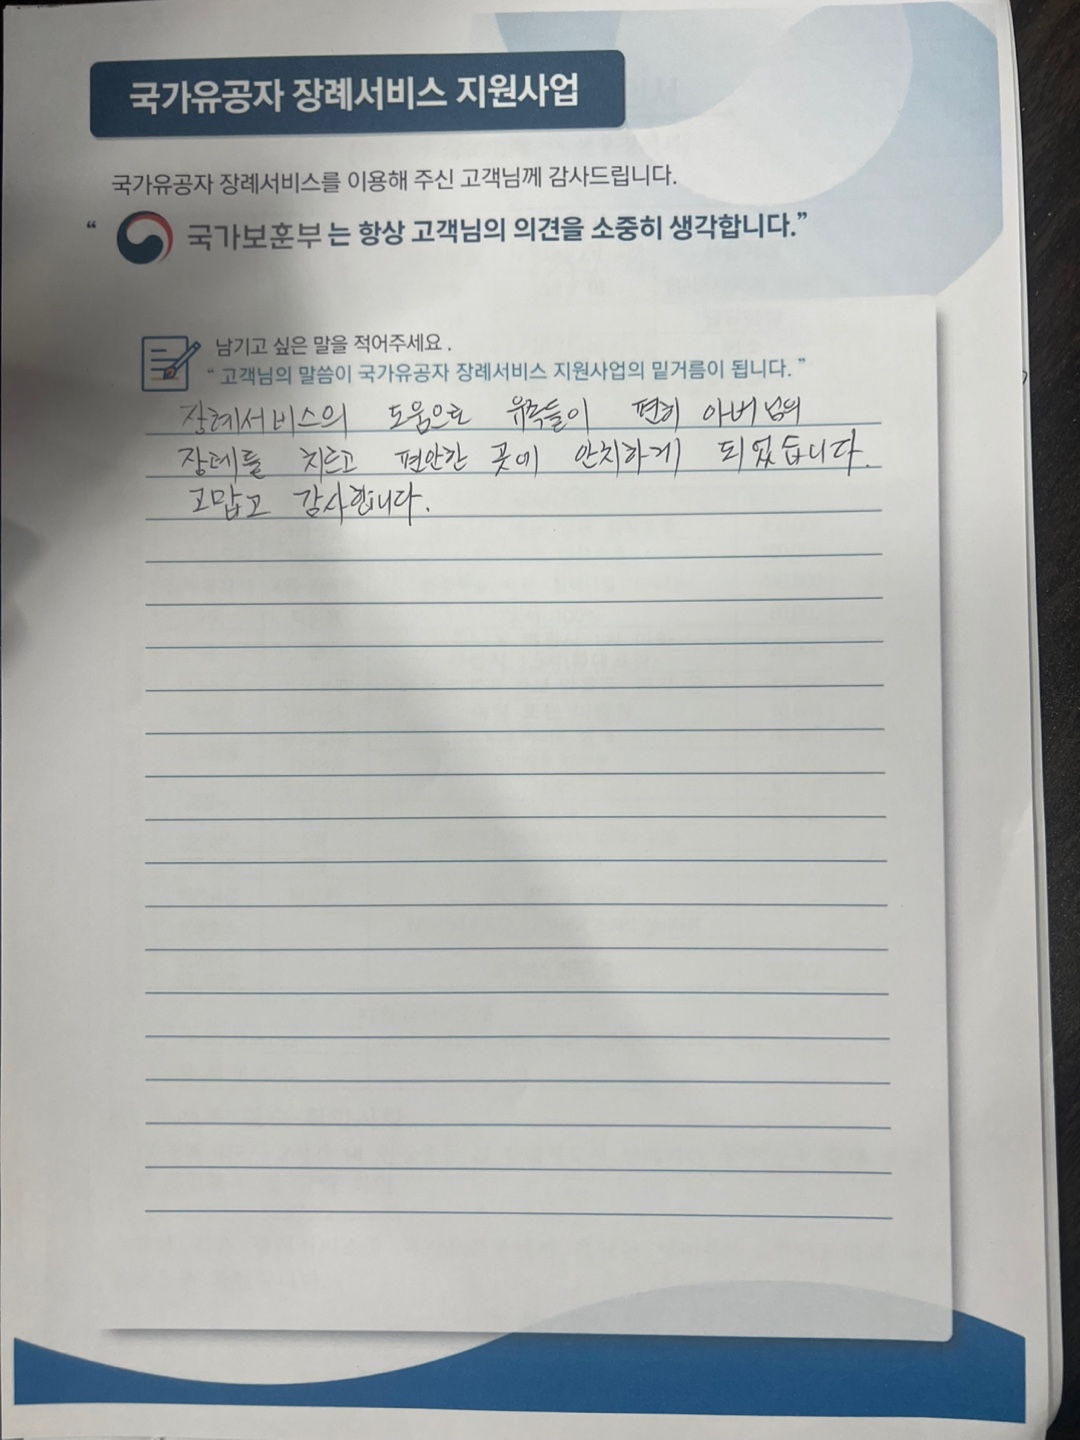 국가유공자 장례서비스 지원사업
국가유공자 장례서비스를 이용해 주신 고객님께 감사드립니다.
“ 국가보훈부는 항상 고객님의 의견을 소중히 생각합니다.”
남기고 싶은 말을 적어주세요 .
“ 고객님의 말씀이 국가유공자 장례서비스 지원사업의 밑거름이 됩니다. ”
장례서비스의 도움으로 유족들이 편히 아버님의
장례를 치르고 편안한 곳에 안치하게 되었습니다.
고맙고 감사합니다.